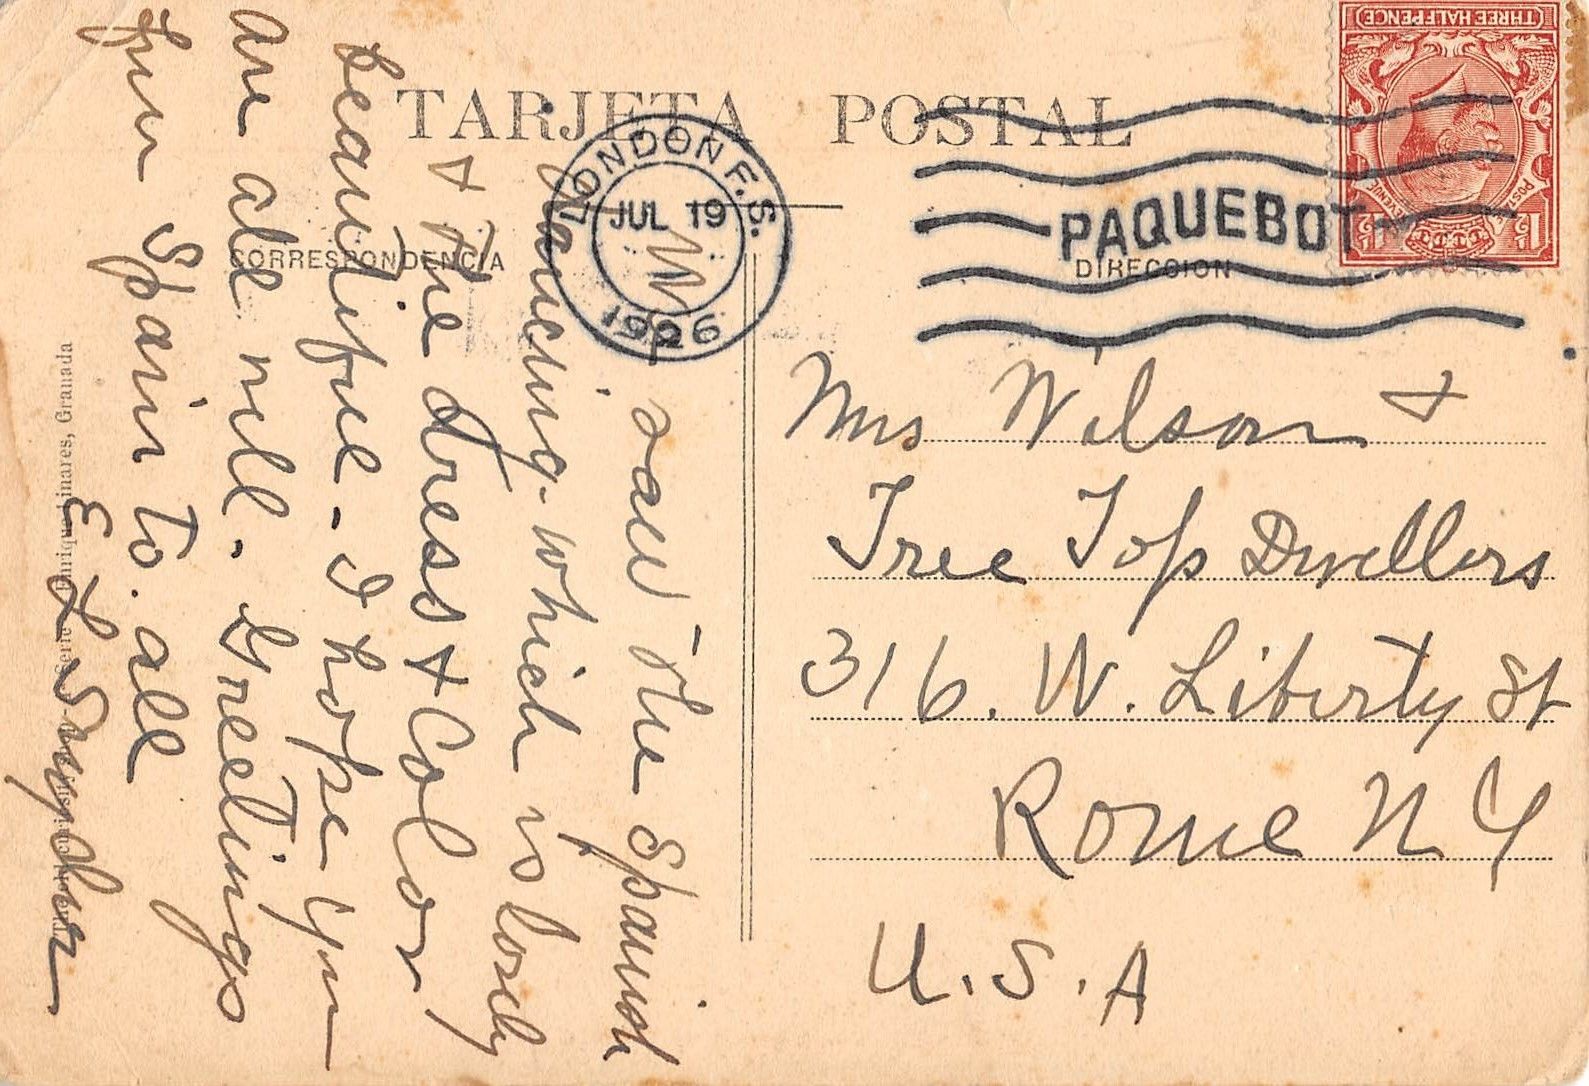 TARJETA POSTAL
CORRESPONDENCIA
DIRECCION
LONDON F.S.
JUL 19
1926
PAQUEBOT
THREE HALFPENCE
POSTAGE REVENUE
1½ 1½
I saw the Spanish
Dancing - which is lovely
+ the dress + Color
beautiful. I hope you
are all well. Greetings
from Spain to all
E L Snyder
Mrs Wilson +
Tree Top Dwellers
316. W. Liberty St
Rome N Y
U.S.A
Serie Enrique Linares, Granada